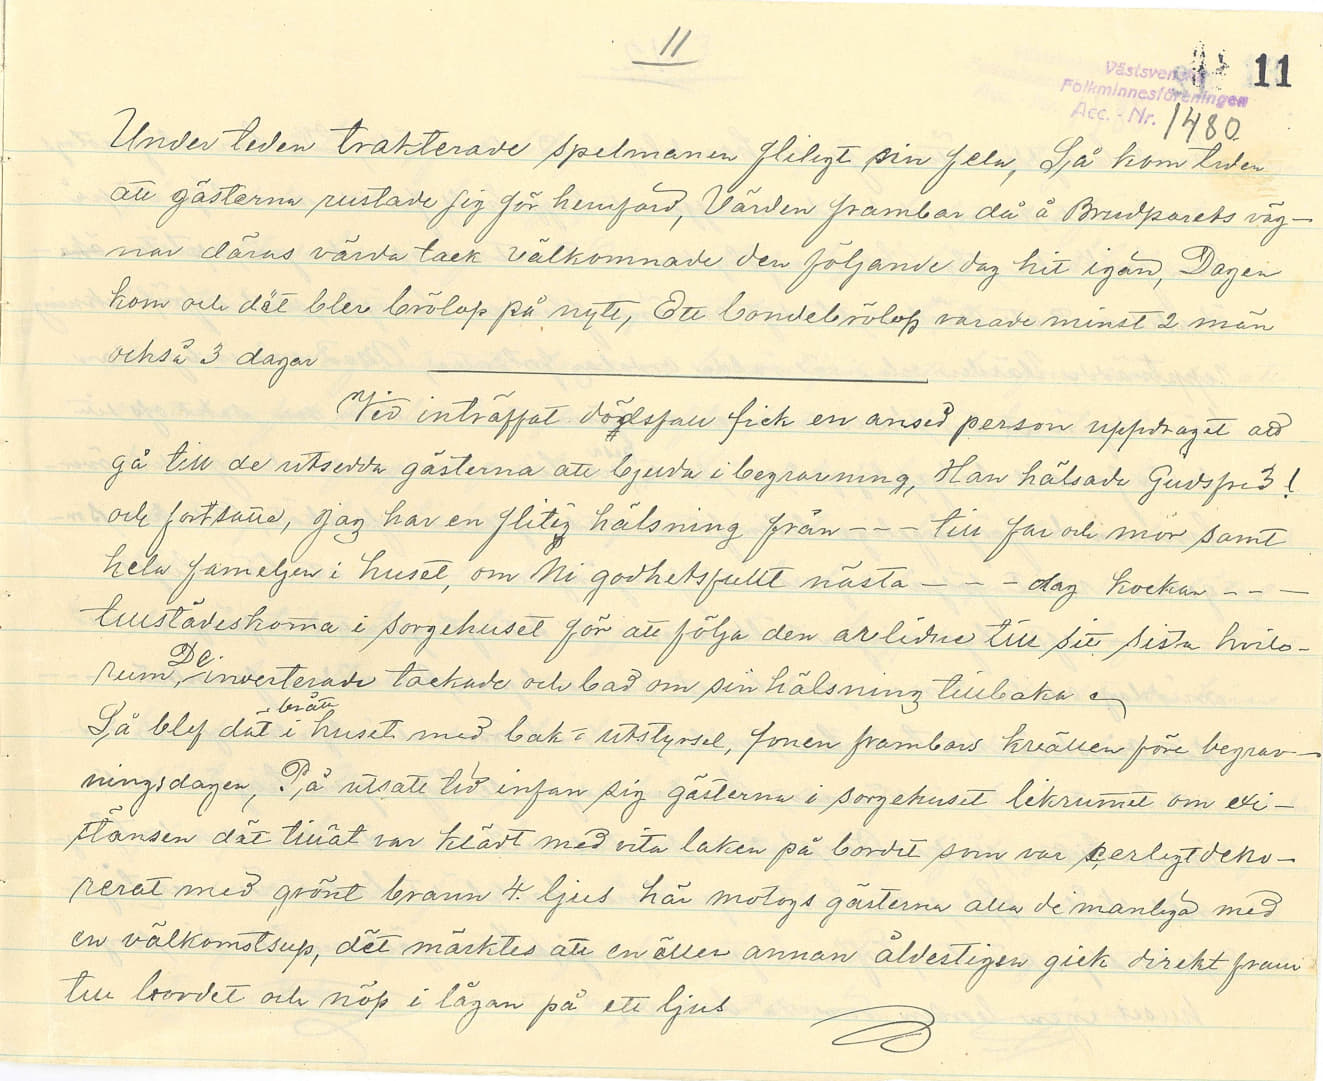 11
11
Västsvenska
Folkminnesföreningen
Acc. - Nr. 1480.
Under tiden trakterade spelmanen flitigt sin fela, Så kom tiden
att gästerna rustade sig för hemfärd, Värden frambar då å Brudparets väg-
nar däras värda tack välkomnade den följande dag hit igän, Dagen
kom och dät blev brölop på nytt, Ett bondebrölop varade minst 2 män
också 3 dagar
Vid inträffat dödsfall fick en ansed person uppdraget att
gå till de utsedda gästerna att bjuda i begravning, Han hälsade Gudsfred!
och fortsatte, jag har en flitig hälsning från - - - till far och mor samt
hela fameljen i huset, om Ni godhetsfullt nästa - - - dag kockan - - -
tillstädeskoma i sorgehuset för att följa den avlidne till sitt sista hvilo-
rum, De inverterade tackade och bad om sin hälsning tillbaka
Så blef dät brått i huset med bak- utstyrsel, fonen frambars kvällen före begrav-
ningsdagen, På utsatt tid infan sig gästerna i sorgehuset likrummet om exi-
stänsen dät tillät var klädt med vita laken på bordet som var serligt deko-
rerat med grönt brann 4. ljus här motogs gästerna alla de manliga med
en välkomstsup, dät märktes att en äller annan åldestigen gick direkt fram
till bordet och nöp i lågan på ett ljus